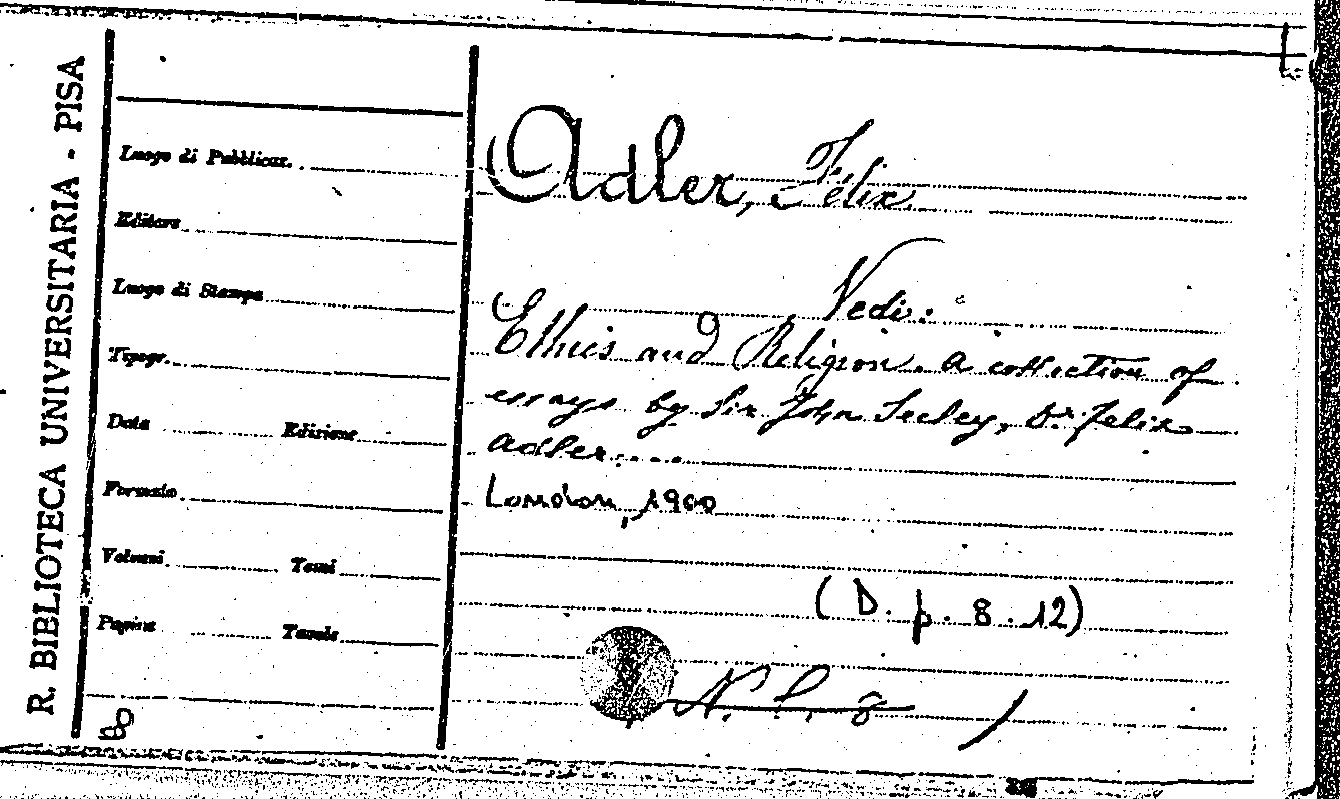 R. BIBLIOTECA UNIVERSITARIA - PISA
Luogo di Pubblicaz.
Editore
Luogo di Stampa
Tipogr.
Data Edizione
Formato
Volumi Tomi
Pagine Tavole
Adler, Felix
Vedi:
Ethics and Religion. A collection of
essays by Sir John Seeley, Dr. Felix
Adler....
London, 1900
(D. p. 8. 12)